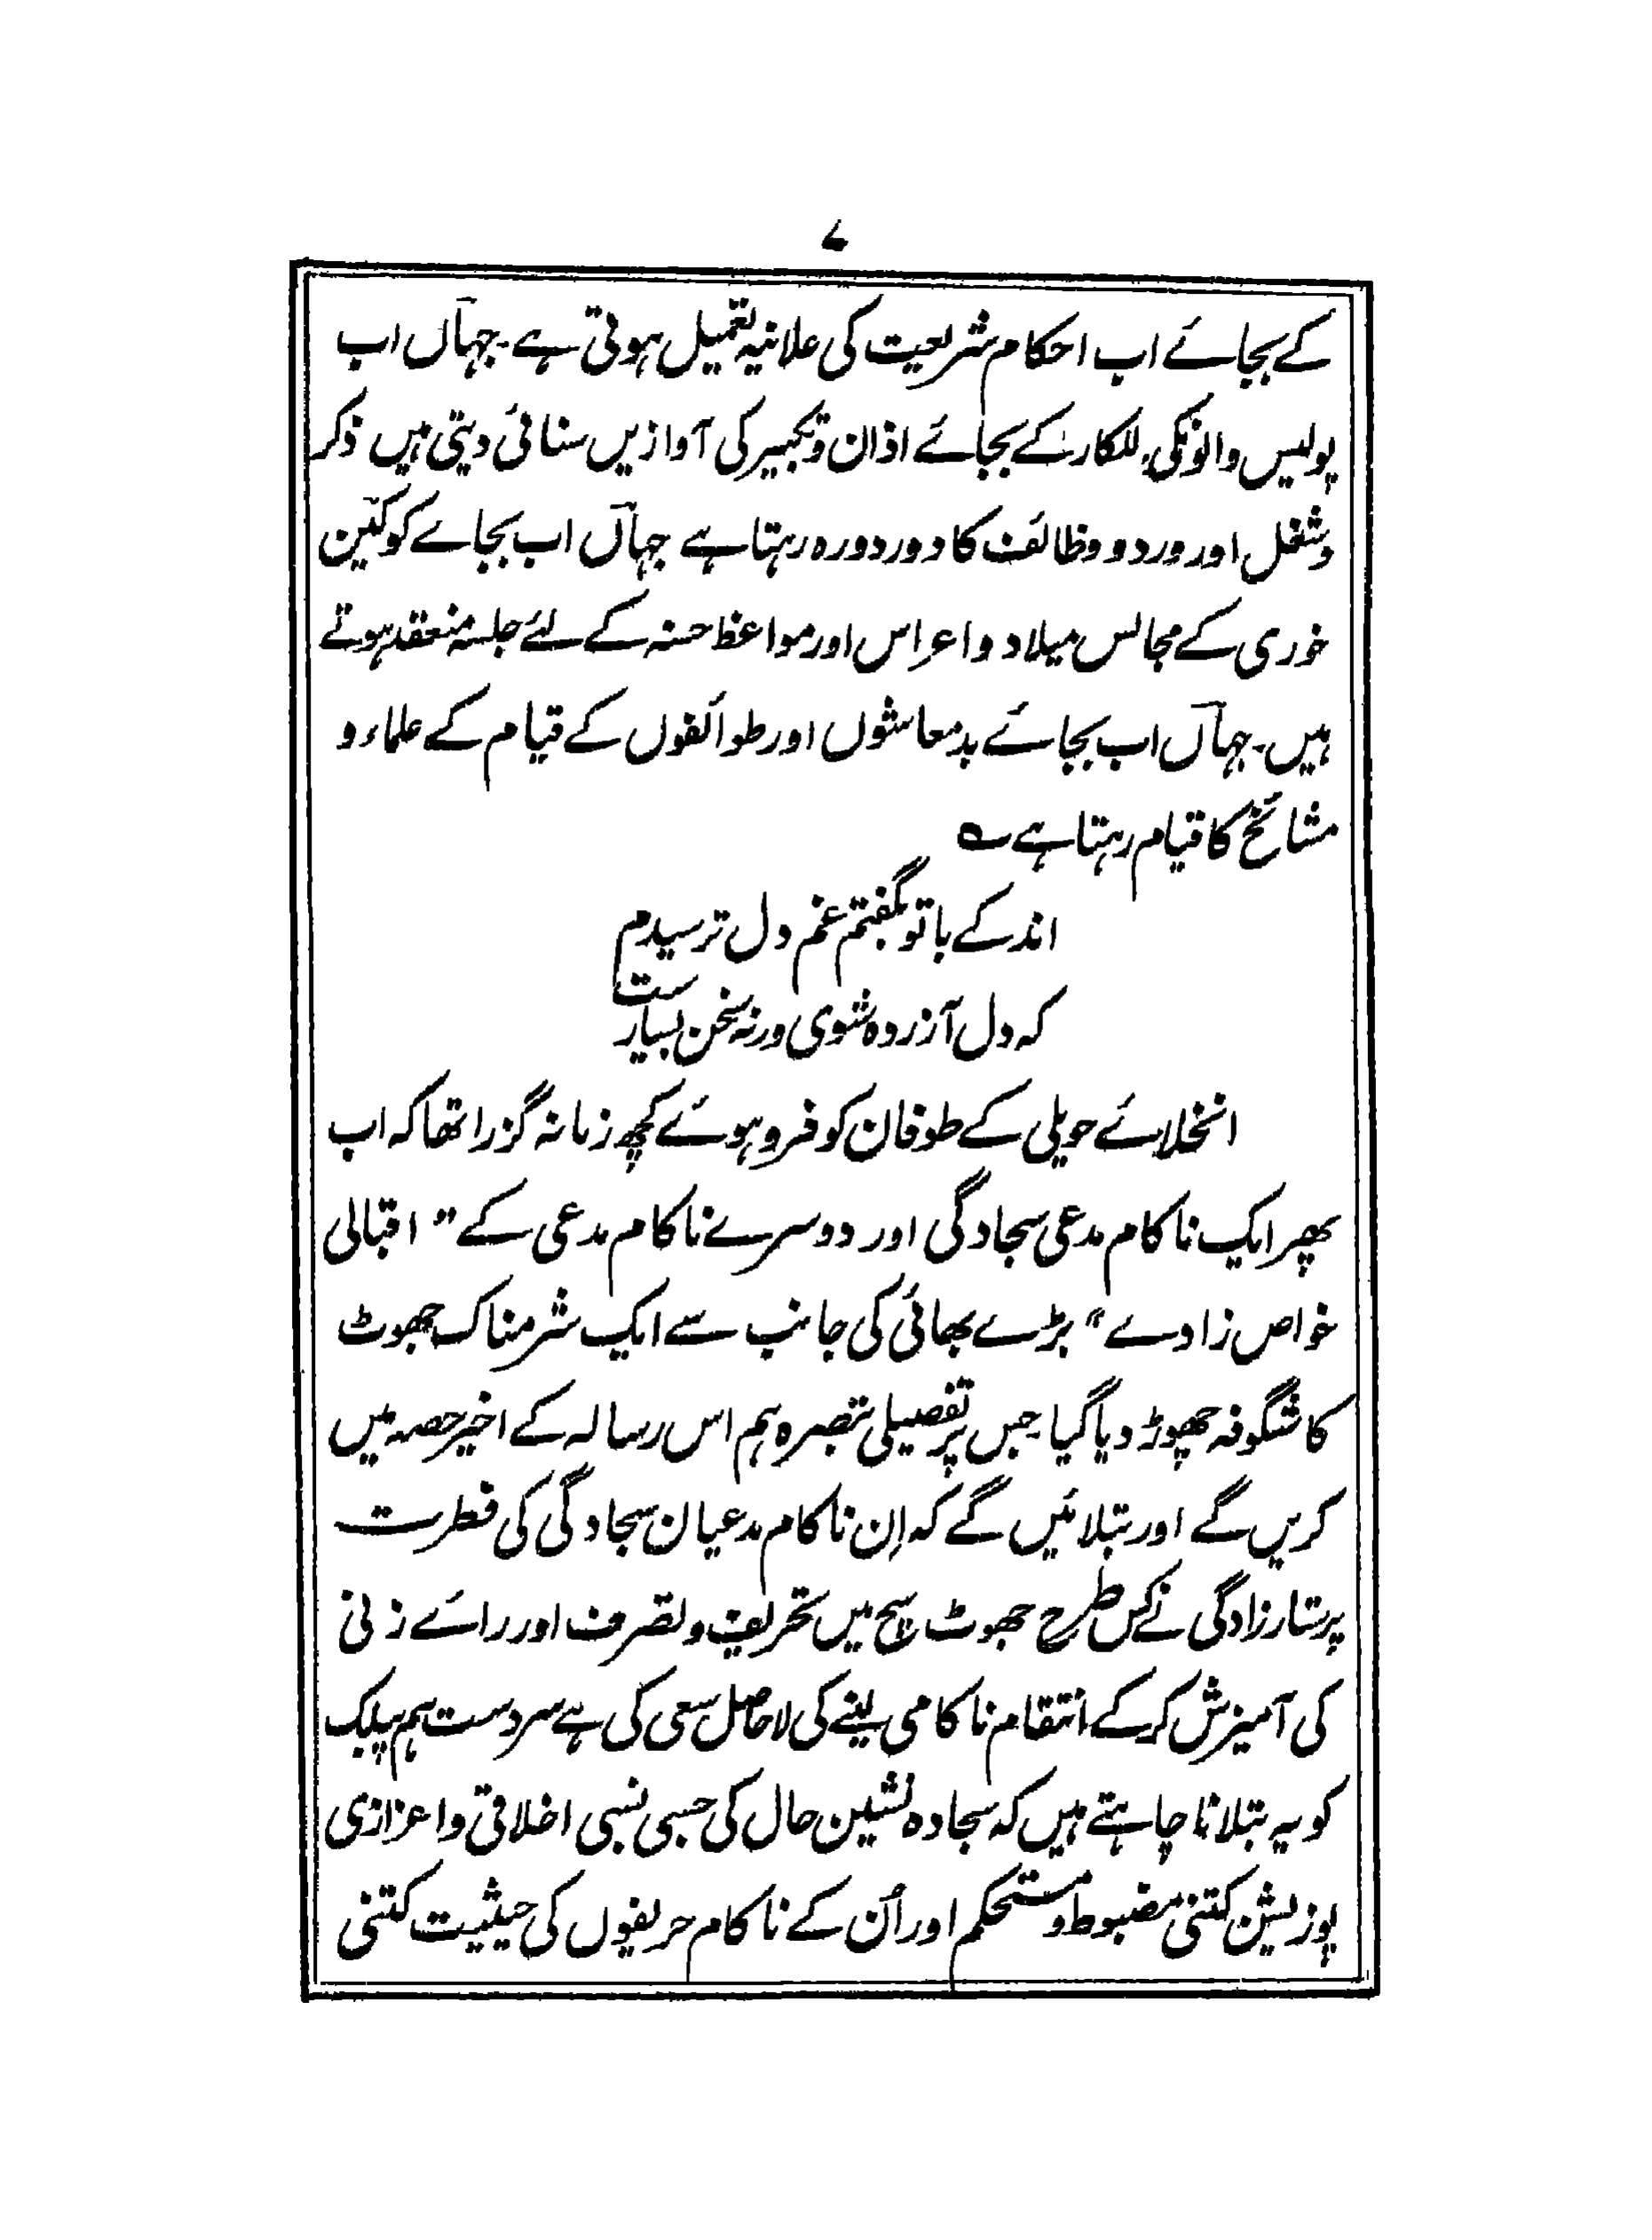 ۷
کے بجائے اب احکام شریعت کی علانیہ تعمیل ہوتی ہے۔ جہاں اب
پولیس والونکی للکار کے بجائے اذان و تکبیر کی آوازیں سنائی دیتی ہیں ذکر
و شغل اور ورد و وظائف کا دور دورہ رہتا ہے جہاں اب بجاے کوکین
خوری کے مجالس میلاد و اعراس اور مواعظ حسنہ کے لئے جلسہ منعقد ہوتے
ہیں۔ جہاں اب بجائے بدمعاشوں اور طوائفوں کے قیام کے علماء و
مشائخ کا قیام رہتا ہے ؎
اندکے باتو بگفتم غم دل ترسیدم
کہ دل آزردہ شوی ورنہ سخن بسیار ست
انخلائے حویلی کے طوفان کو فرو ہوئے کچھ زمانہ گزرا تھا کہ اب
پھر ایک ناکام مدعی سجادگی اور دوسرے ناکام مدعی کے " اقبالی
خواص زادے " بڑے بھائی کی جانب سے ایک شرمناک جھوٹ
کا شگوفہ چھوڑ دیا گیا جس پر تفصیلی تبصرہ ہم اس رسالہ کے اخیر حصہ میں
کریں گے اور بتلائیں گے کہ اِن ناکام مدعیان سجادگی کی فطرت
پرستار زادگی نے کس طرح جھوٹ سچ میں تحریف و تصرف اور رائے زنی
کی آمیزش کرکے انتقام ناکامی لینے کی لاحاصل سعی کی ہے سردست ہم پبلک
کو یہ بتلانا چاہتے ہیں کہ سجادہ نشین حال کی حسبی نسبی اخلاقی و اعزازی
پوزیشن کتنی مضبوط و مستحکم اور اُن کے ناکام حریفوں کی حیثیت کتنی